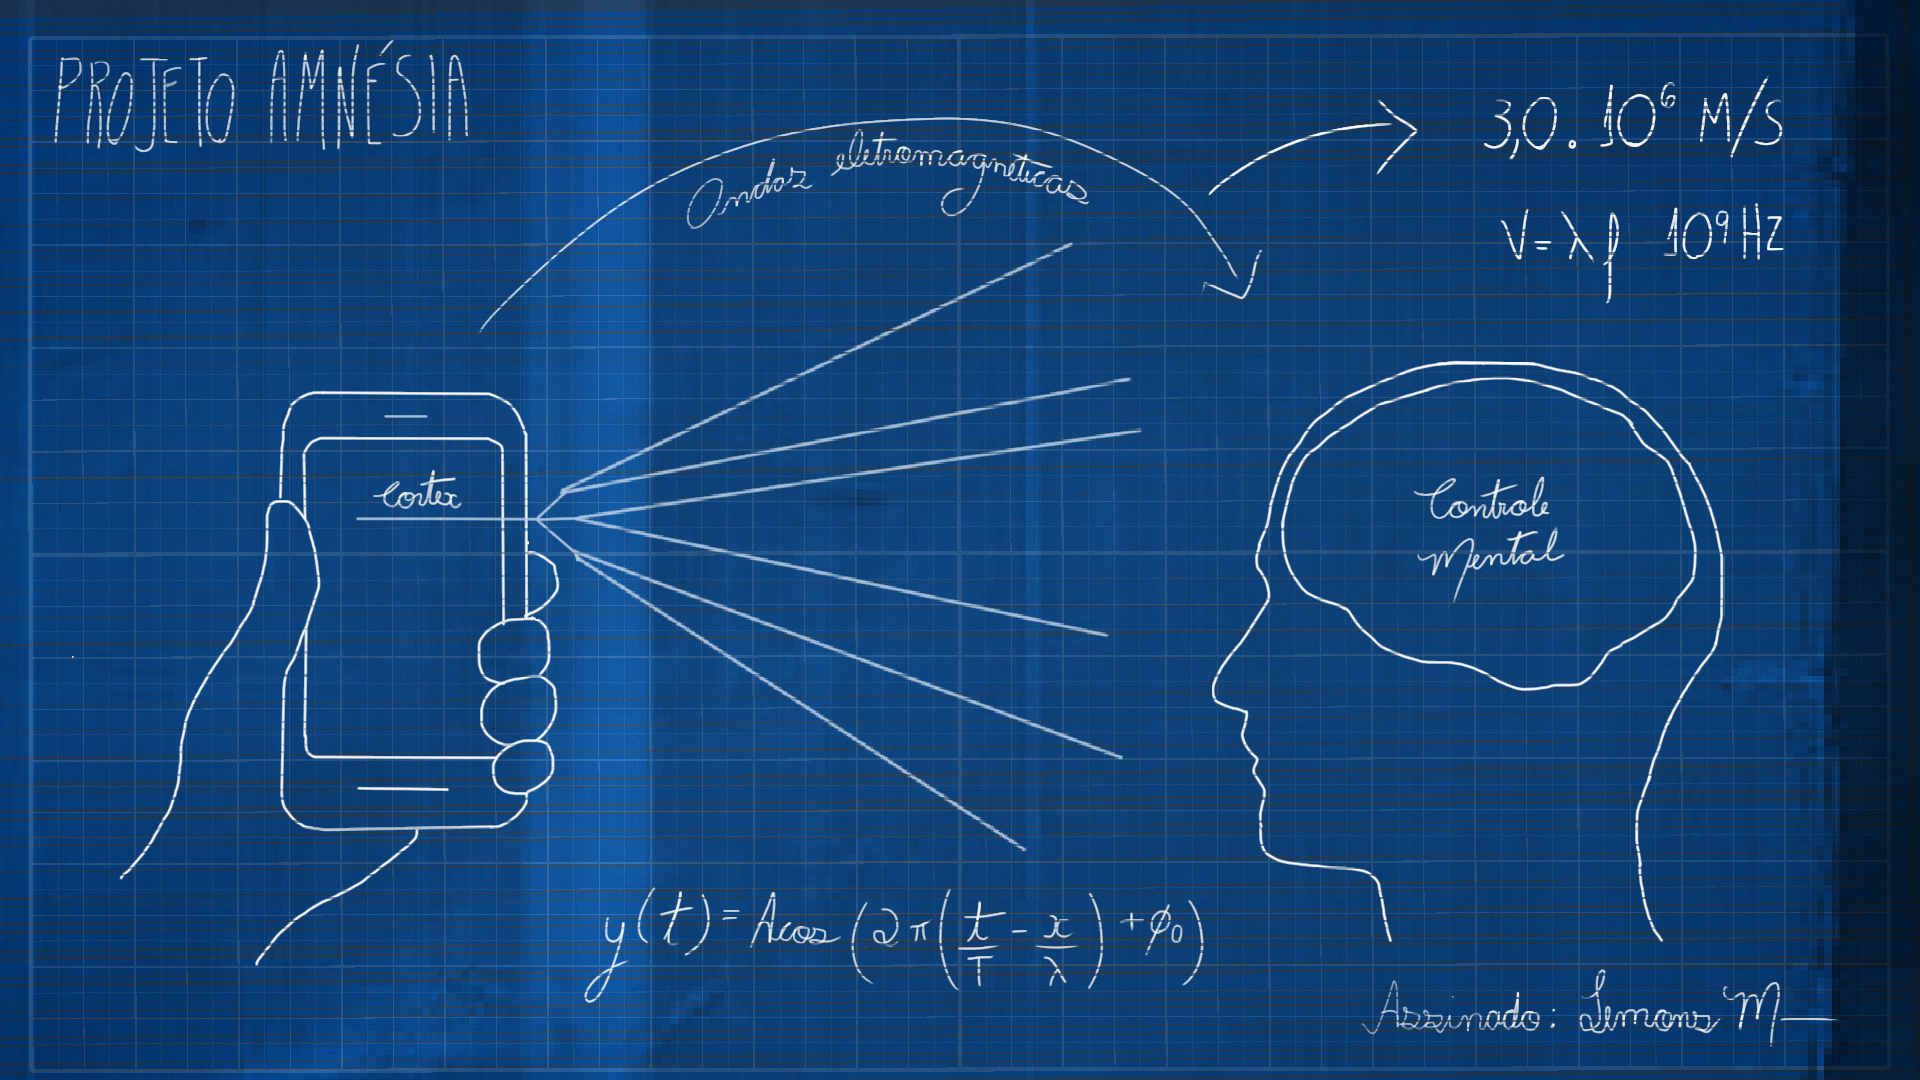 PROJETO AMNÉSIA
Ondas eletromagnéticas
3,0. 10⁶ M/S
V=λf 10⁹ HZ
Cortex
Controle
Mental
y(t) = A cos(2π(t/T - x/λ) + φ₀)
Assinado: Simons M